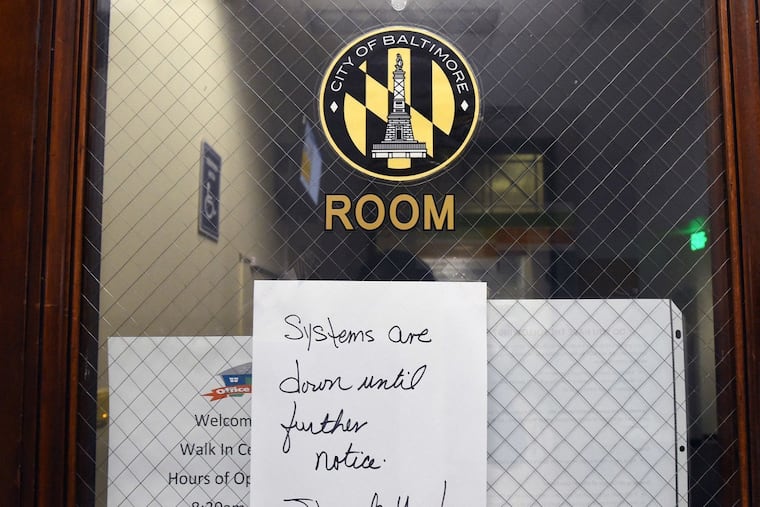 CITY OF BALTIMORE
ROOM
Systems are
down until
further
notice.
Office
Welcom
Walk In Ce
Hours of Op
8:30am